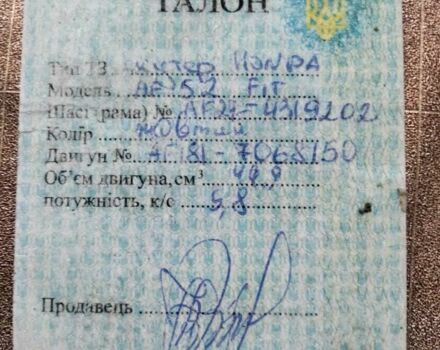 ТАЛОН
Тип ТЗ скутер HONDA
Модель AF 52 FIT
Шасі (рама) № AF27-4319202
Колір жовтий
Двигун № AF18E-7068150
Об'єм двигуна, см³ 49,9
потужність, к/с 5,8
Продавець